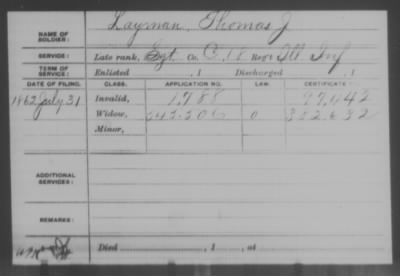 NAME OF SOLDIER: Layman, Thomas J
SERVICE: Late rank, Sgt. Co. C, 18 Reg't Ill. Inf
TERM OF SERVICE: Enlisted , 1 Discharged , 1
DATE OF FILING. CLASS. APPLICATION NO. LAW. CERTIFICATE
1862 July 31 Invalid, 1,988 97,042
Widow, 543.506 0 352.632
Minor,
ADDITIONAL SERVICES:
REMARKS:
Died , 1 , at